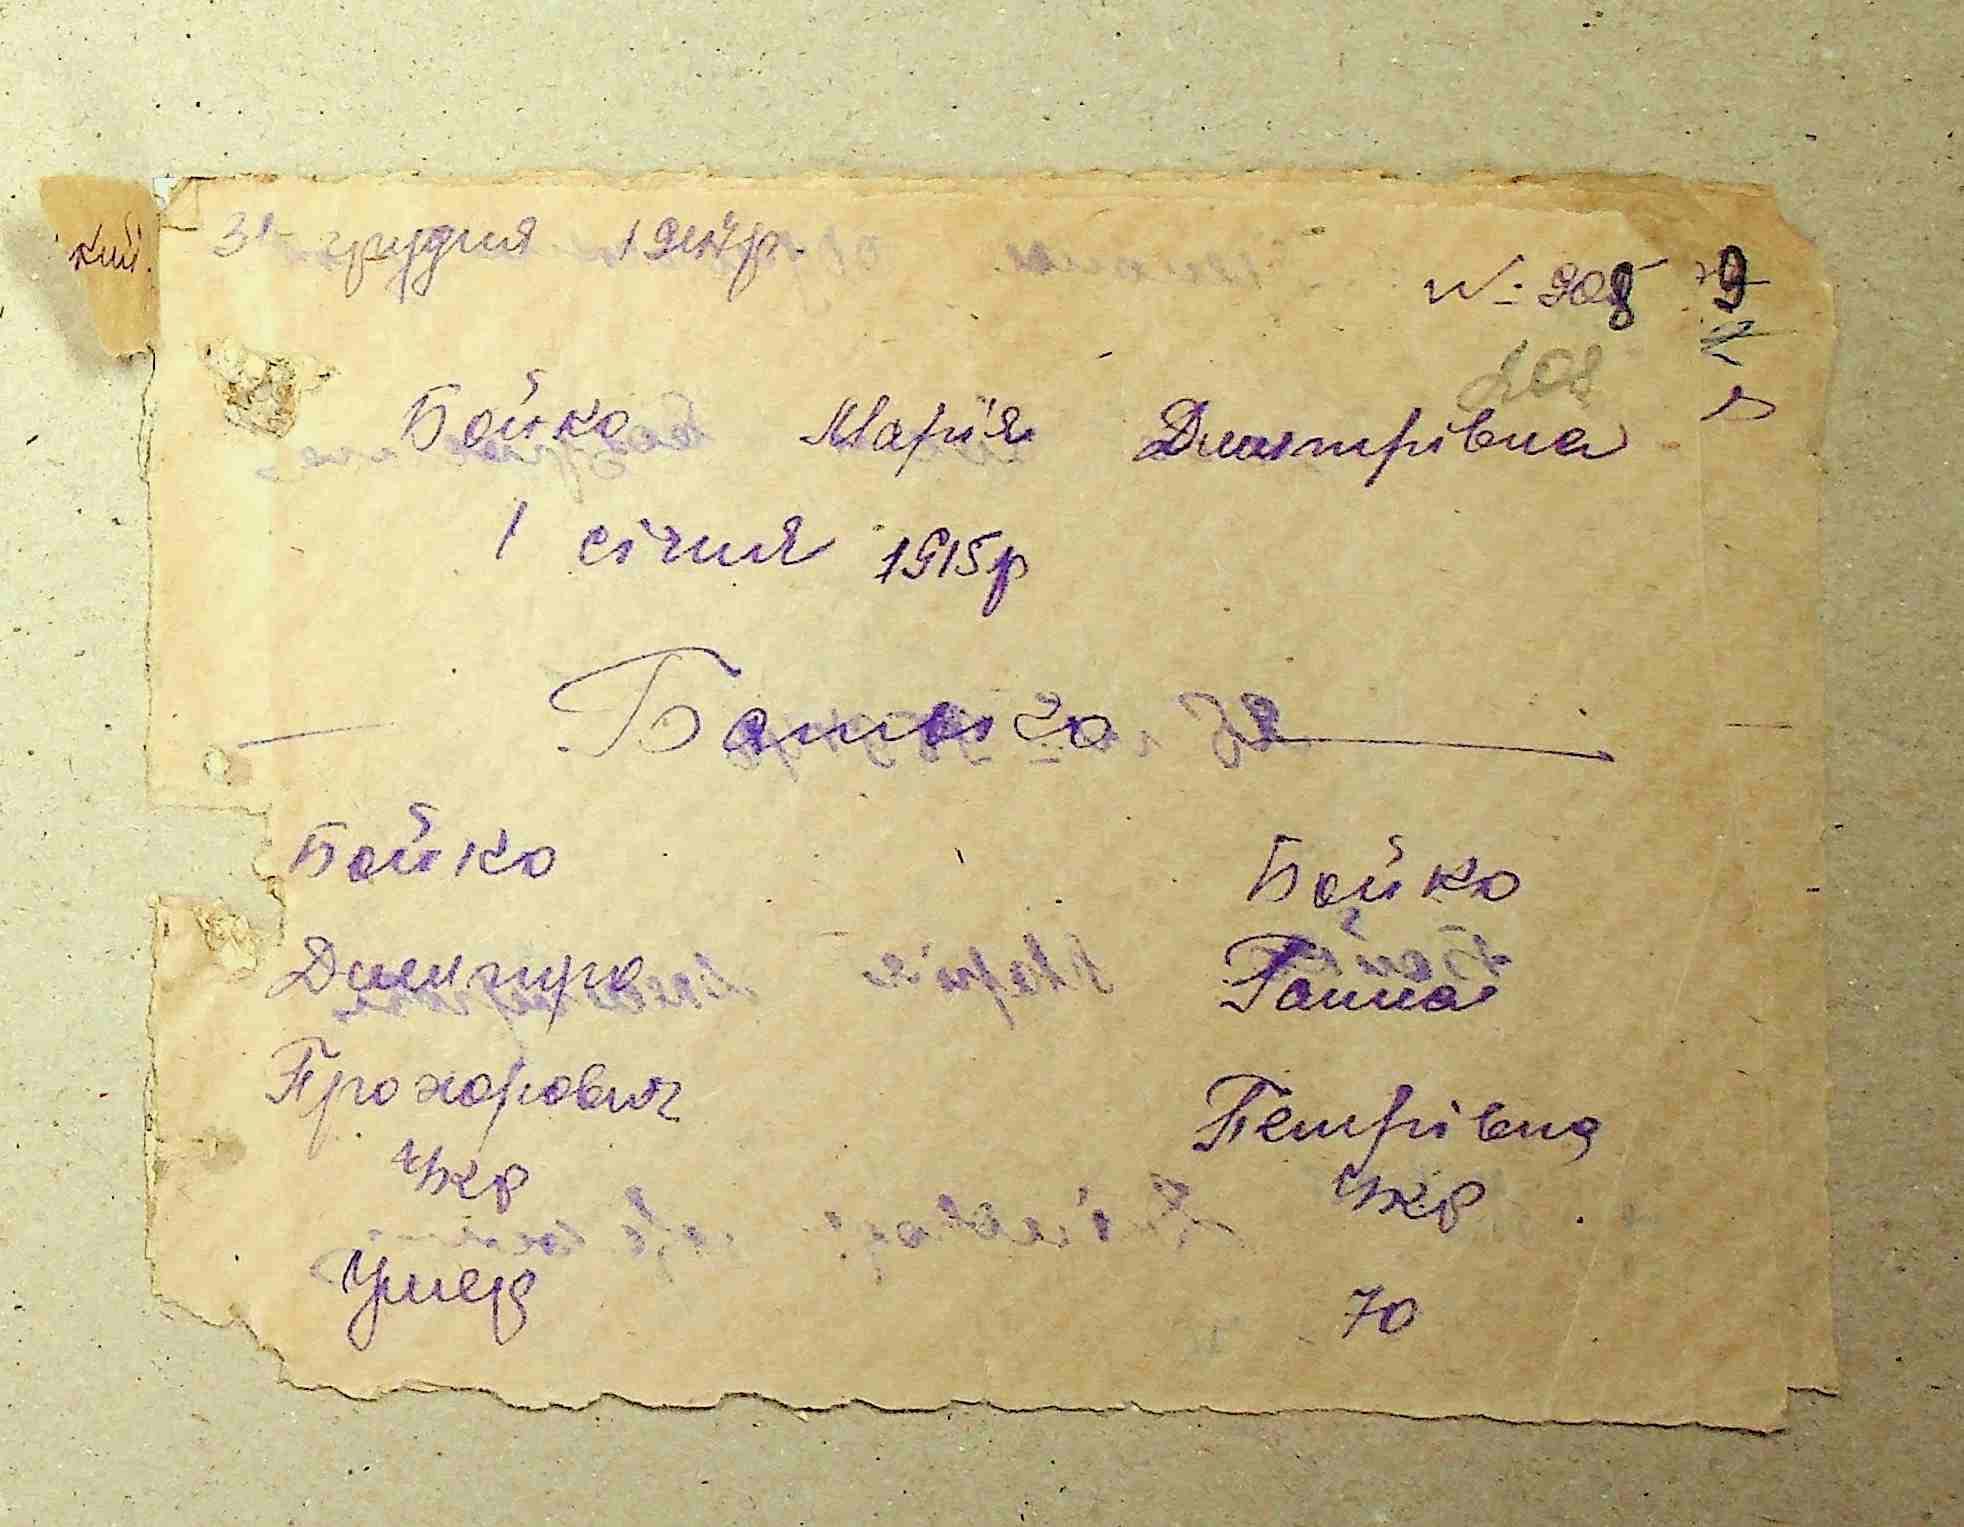 31 грудня 194р.
№ 208 9
208
Бойко Марія Дмитрівна
1 січня 1915р
Батьза
Бойко Бойко
Дмитро Ганна
Прохорович Петрівна
Укр Укр
Умер 70